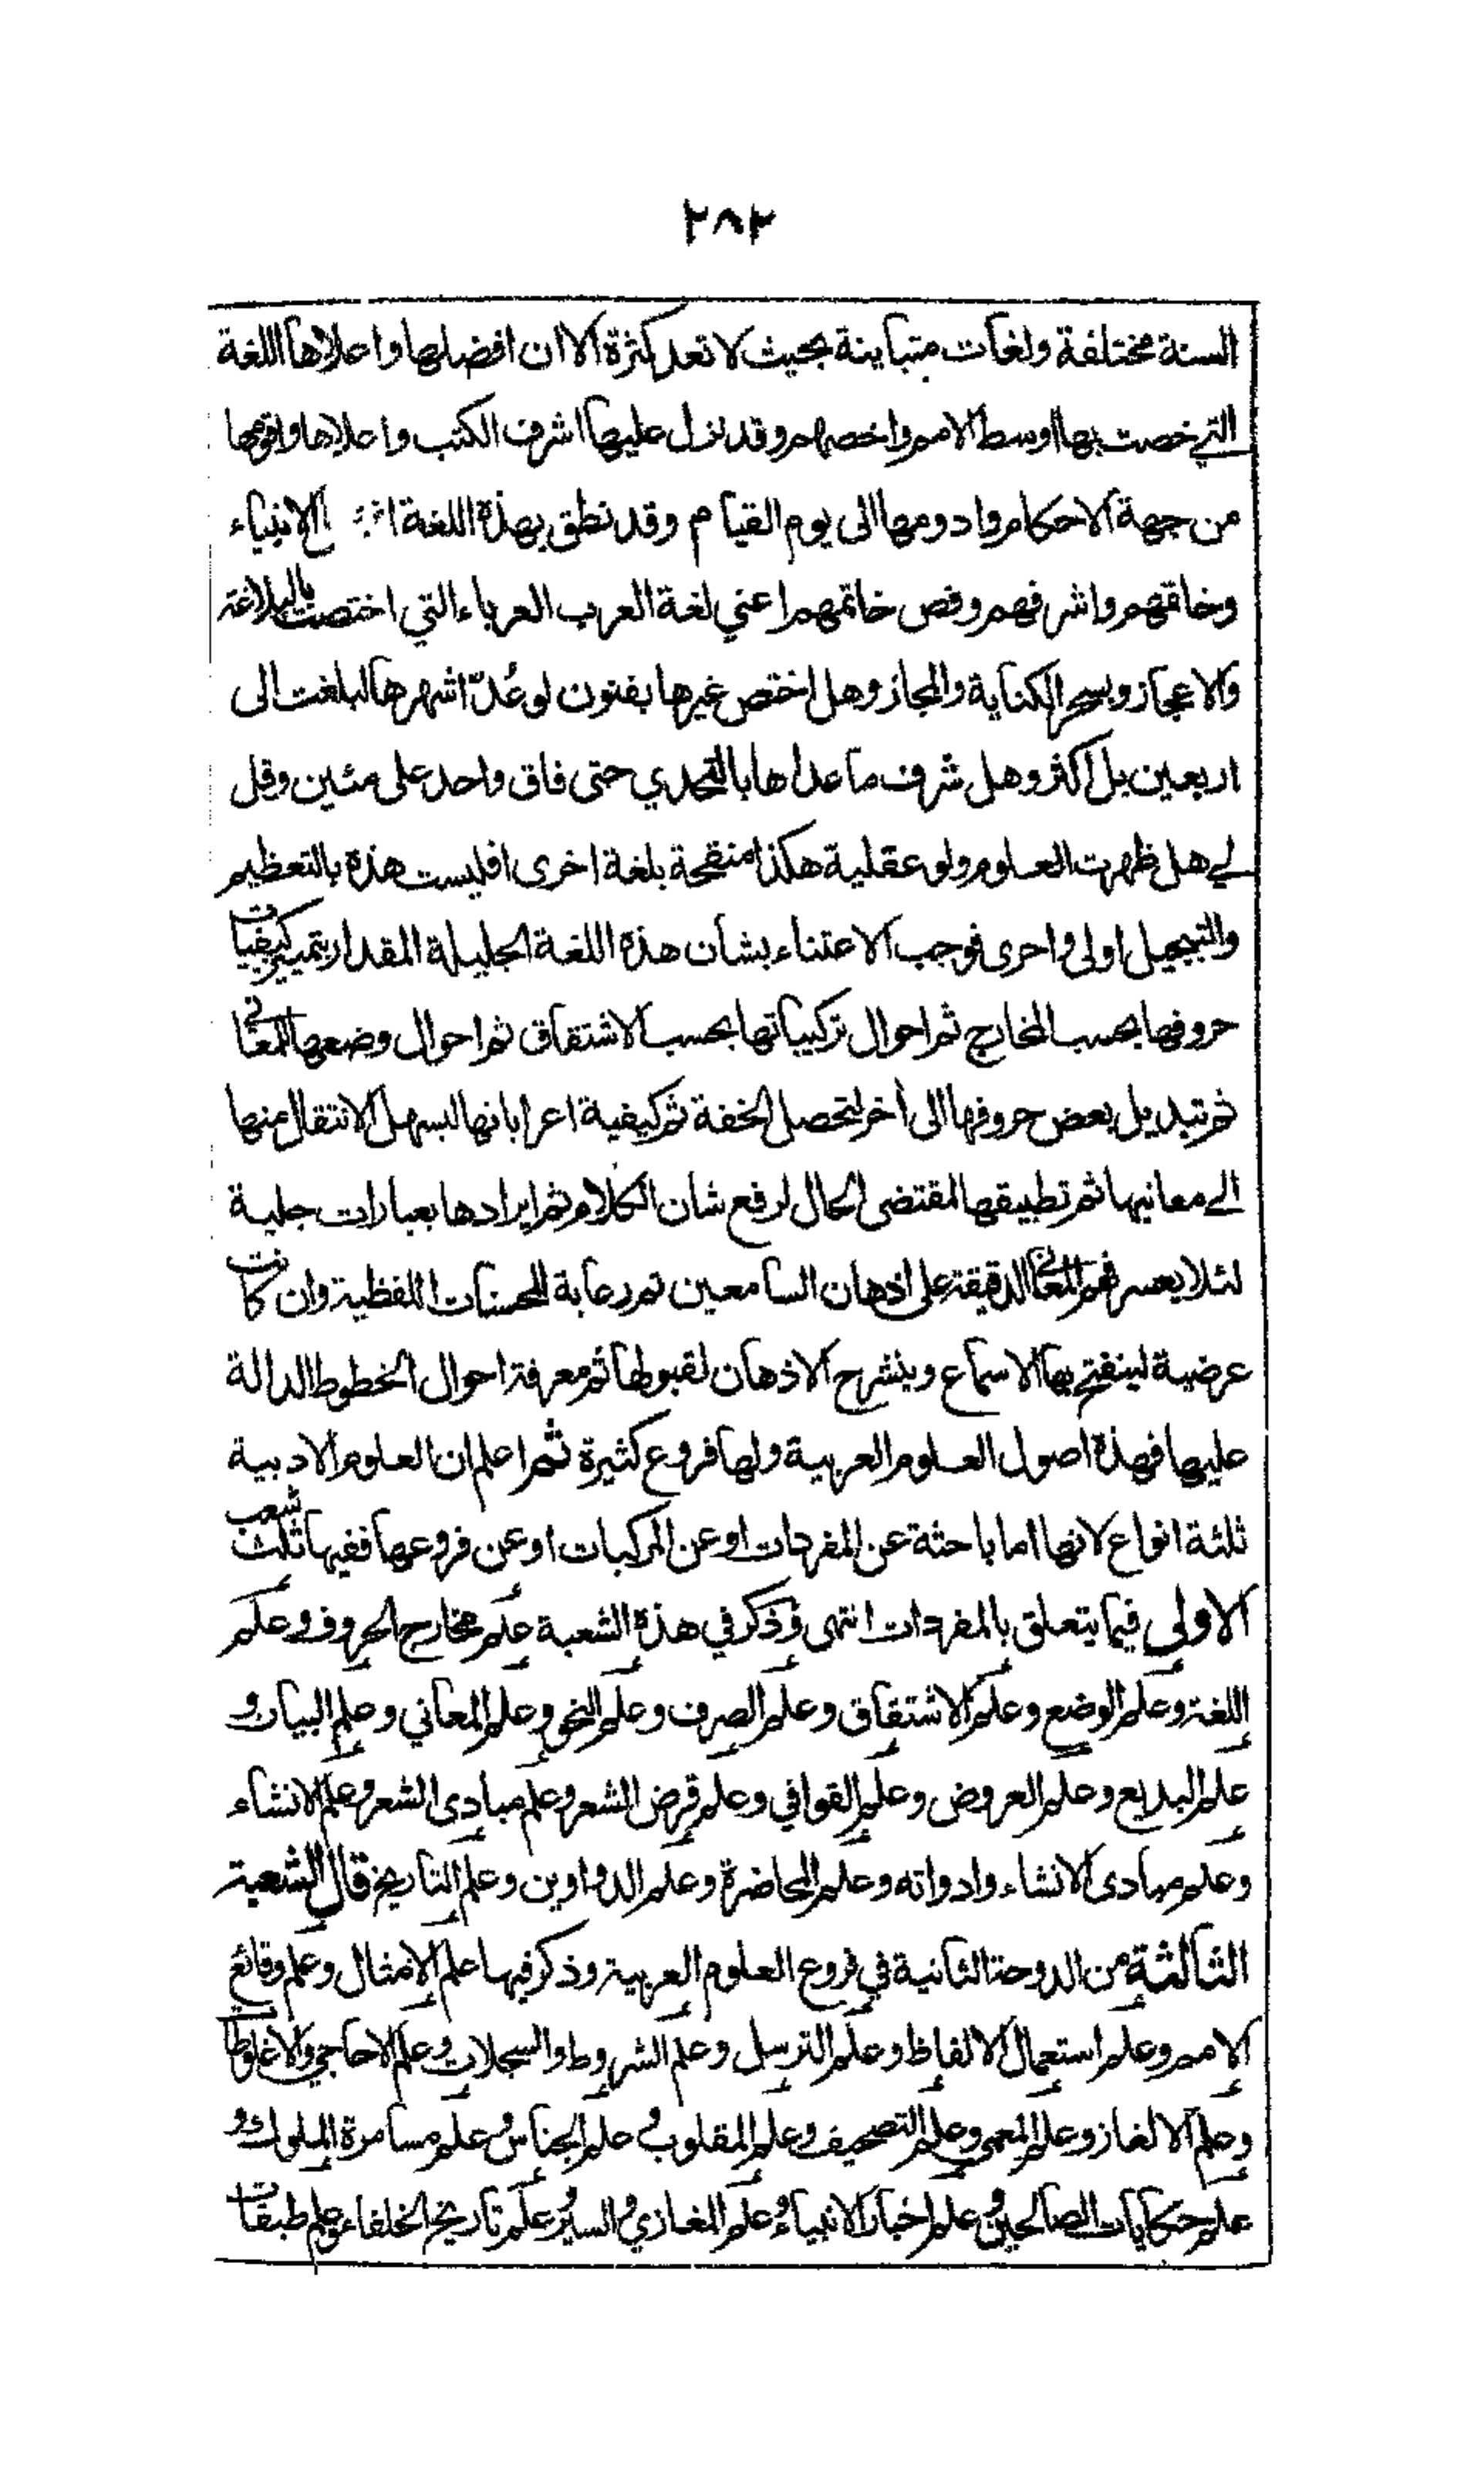 ٢٨٢
السنة مختلفة ولغات متباينة بحيث لا تعد كثرة الا ان افضلها واعلاها اللغة
التي خصت بها اوسط الامم واخصهم وقد نزل عليها اشرف الكتب واعلاها واقومها
من جهة الاحكام وادومها الى يوم القيام وقد نطق بهذه اللغة الانبياء
وخاتمهم واشرفهم وفص خاتمهم اعني لغة العرب العرباء التي اختصت بالبلاغة
والاعجاز وبسحر الكناية والمجاز وهل اختص غيرها بفنون لو عُدّ اشهرها لبلغت الى
اربعين بل اكثر وهل شرف ما عداها بالتحدي حتى فاق واحد على مئين وقل
لي هل ظهرت العلوم ولو عقلية هكذا منقحة بلغة اخرى افليست هذه بالتعظيم
والتبجيل اولى واحرى فوجب الاعتناء بشان هذه اللغة الجليلة المقدار بتمييز كيفيات
حروفها بحسب المخارج ثم احوال تركيباتها بحسب الاشتقاق ثم احوال وضعها للمعاني
ثم تبديل بعض حروفها الى أخر لتحصل الخفة ثم كيفية اعراباتها ليسهل الانتقال منها
الى معانيها ثم تطبيقها لمقتضى الحال لرفع شان الكلام ثم ايرادها بعبارات جلية
لئلا يعسر فهم المعاني الدقيقة على اذهان السامعين ثم رعاية المحسنات اللفظية وان كانت
عرضية لينفتح بها الاسماع وينشرح الاذهان لقبولها ثم معرفة احوال الخطوط الدالة
عليها فهذه اصول العلوم العربية ولها فروع كثيرة ثم اعلم ان العلوم الادبية
ثلثة انواع لانها اما باحثة عن المفردات او عن المركبات او عن فروعها ففيها ثلث شعب
الاولى فيما يتعلق بالمفردات انتهى وذكر في هذه الشعبة علم مخارج الحروف وعلم
اللغة وعلم الوضع وعلم الاشتقاق وعلم الصرف وعلم النحو وعلم المعاني وعلم البيان و
علم البديع وعلم العروض وعلم القوافي وعلم قرض الشعر وعلم مبادى الشعر وعلم الانشاء
وعلم مبادى الانشاء وادواته وعلم المحاضرة وعلم الدواوين وعلم التاريخ قال الشعبة
الثالثة من الدوحة الثانية في فروع العلوم العربية وذكر فيها علم الامثال وعلم وقائع
الامم وعلم استعمال الالفاظ وعلم الترسل وعلم الشروط والسجلات وعلم الاحاجي والاغلوطات
وعلم الالغاز وعلم المعمى وعلم التصحيف وعلم المقلوب وعلم الجناس وعلم مسامرة الملوك و
علم حكايات الصالحين وعلم اخبار الانبياء وعلم المغازي والسير وعلم تاريخ الخلفاء وعلم طبقات